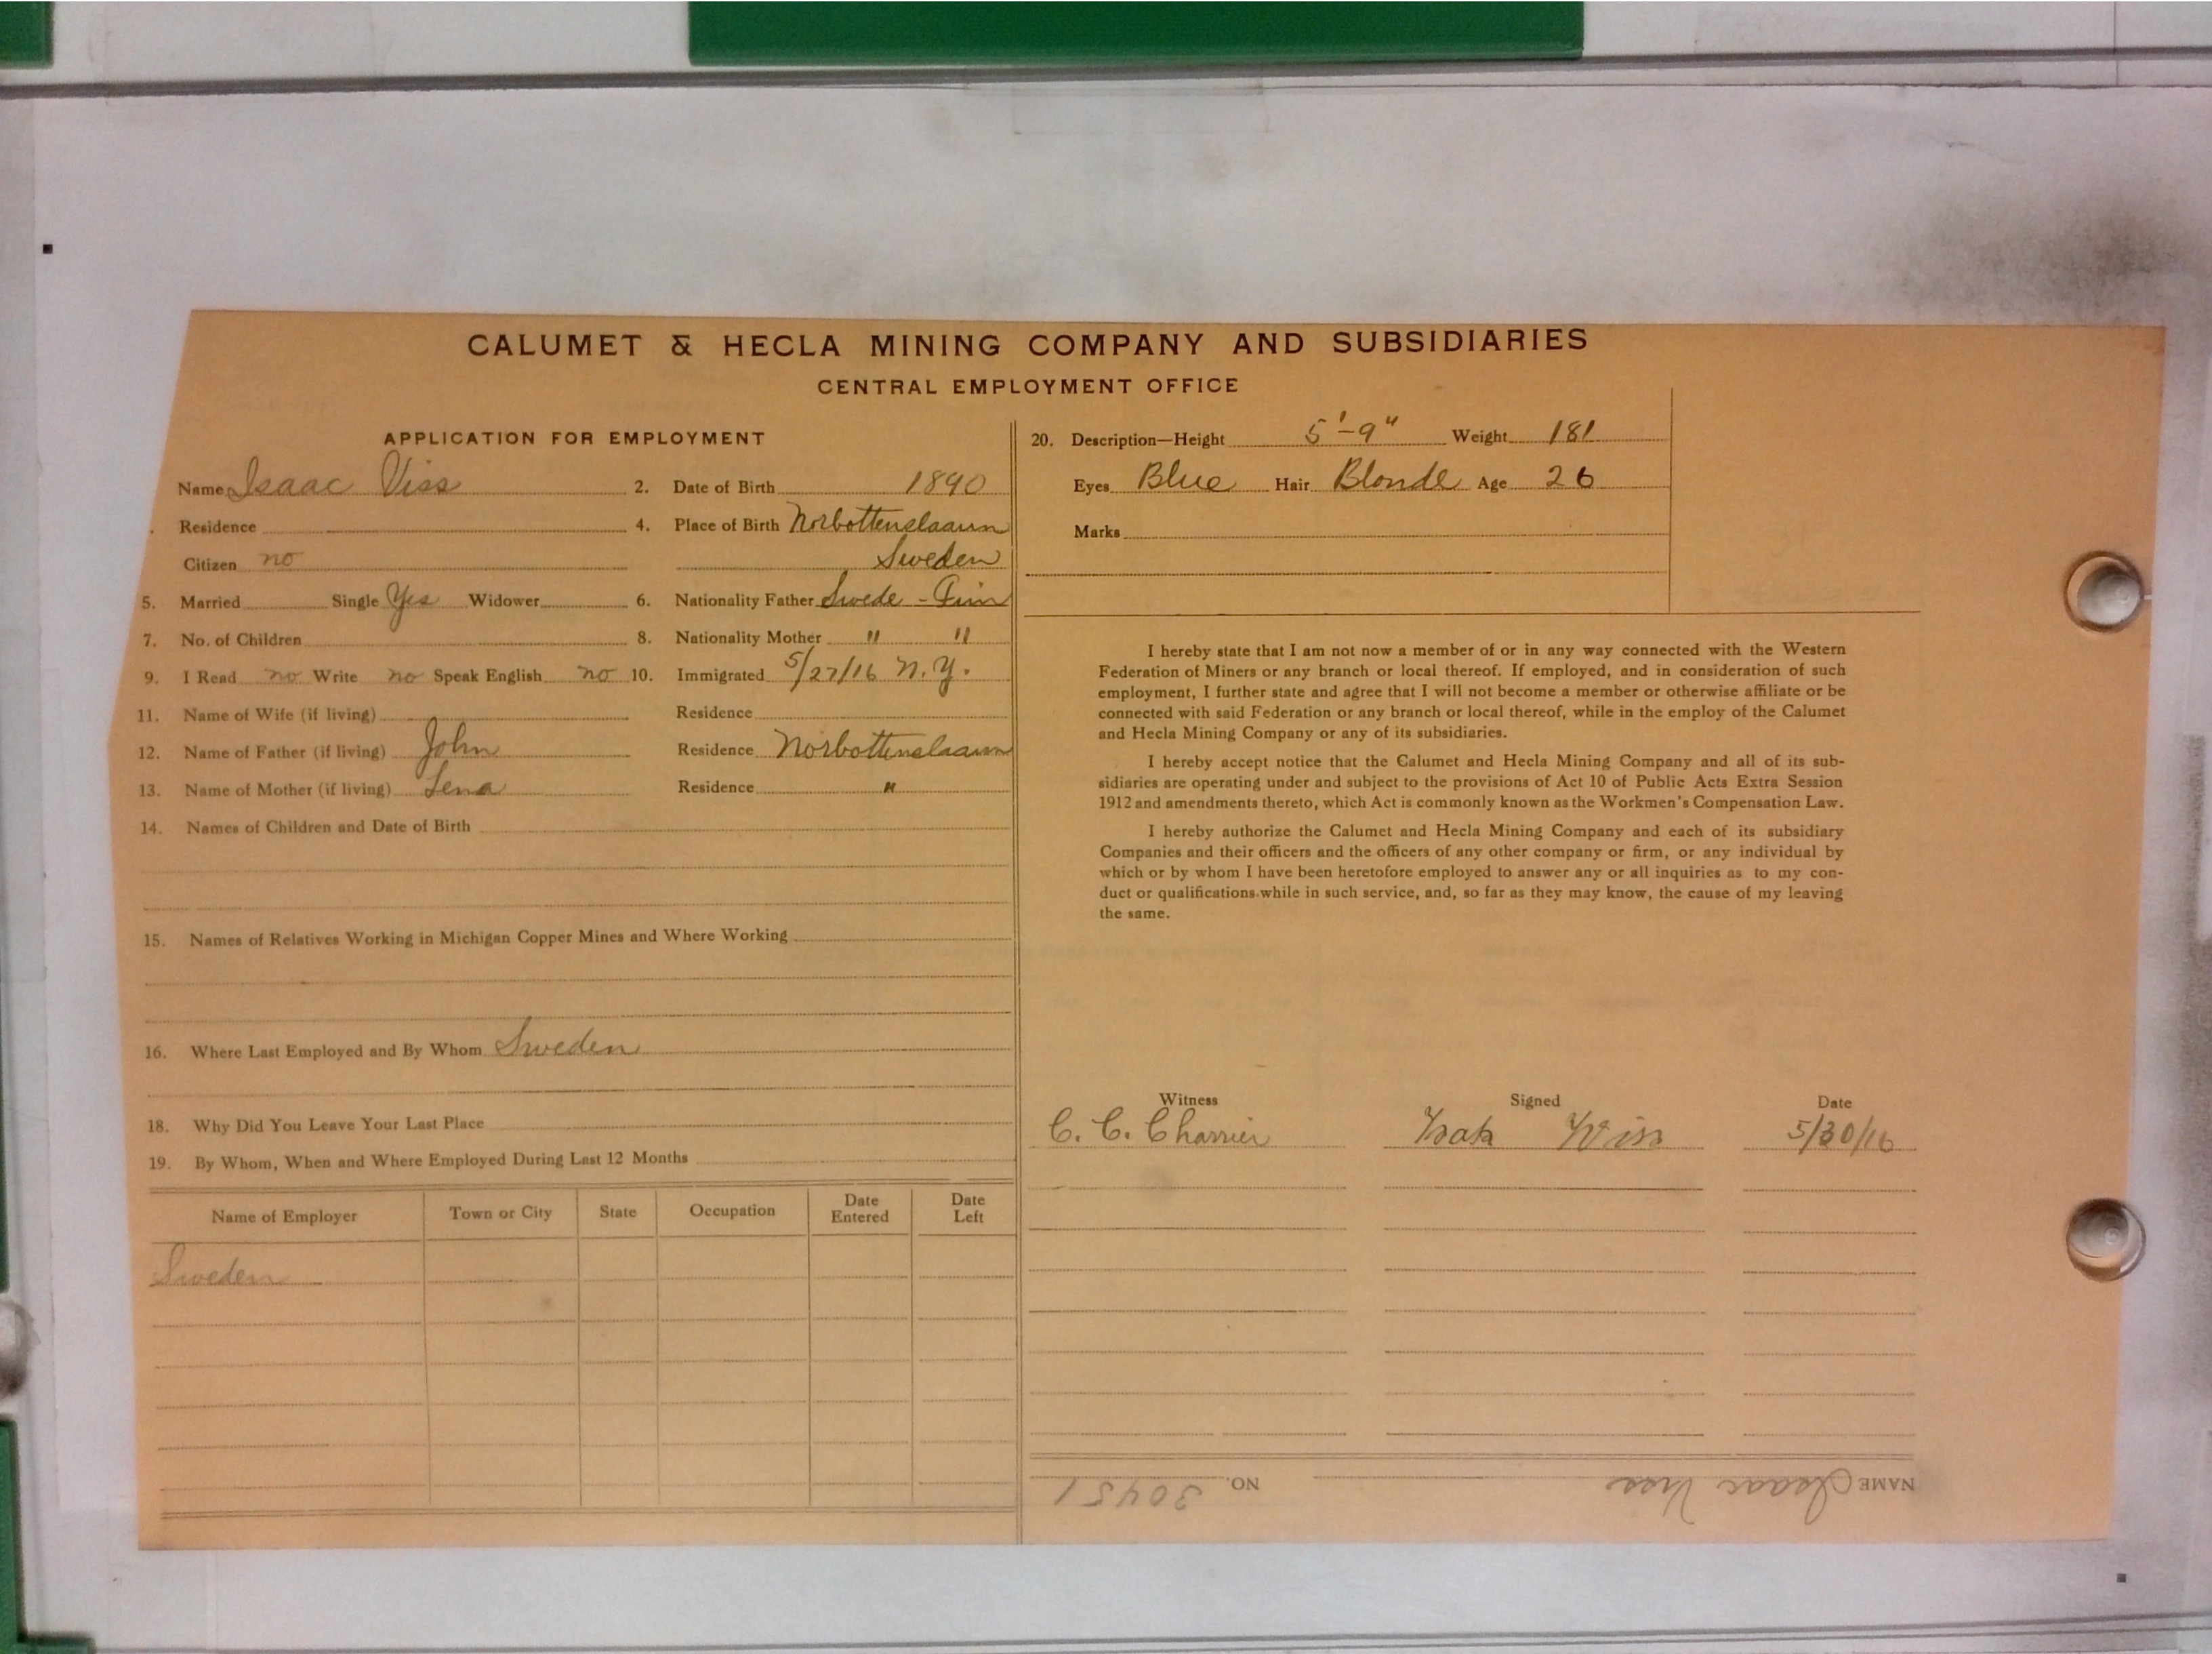 CALUMET & HECLA MINING COMPANY AND SUBSIDIARIES
CENTRAL EMPLOYMENT OFFICE
APPLICATION FOR EMPLOYMENT
Name Isaac Viss 2. Date of Birth 1890
Residence 4. Place of Birth Norbottenslaawn
Citizen no Sweden
5. Married Single Yes Widower 6. Nationality Father Swede - Finn
7. No. of Children 8. Nationality Mother " "
9. I Read no Write no Speak English no 10. Immigrated 5/27/16 N.Y.
11. Name of Wife (if living) Residence
12. Name of Father (if living) John Residence Norbottenslaawn
13. Name of Mother (if living) Lena Residence "
14. Names of Children and Date of Birth
15. Names of Relatives Working in Michigan Copper Mines and Where Working
16. Where Last Employed and By Whom Sweden
18. Why Did You Leave Your Last Place
19. By Whom, When and Where Employed During Last 12 Months
Name of Employer Town or City State Occupation Date Entered Date Left
Sweden
20. Description—Height 5'-9" Weight 181
Eyes Blue Hair Blonde Age 26
Marks
I hereby state that I am not now a member of or in any way connected with the Western
Federation of Miners or any branch or local thereof. If employed, and in consideration of such
employment, I further state and agree that I will not become a member or otherwise affiliate or be
connected with said Federation or any branch or local thereof, while in the employ of the Calumet
and Hecla Mining Company or any of its subsidiaries.
I hereby accept notice that the Calumet and Hecla Mining Company and all of its sub-
sidiaries are operating under and subject to the provisions of Act 10 of Public Acts Extra Session
1912 and amendments thereto, which Act is commonly known as the Workmen's Compensation Law.
I hereby authorize the Calumet and Hecla Mining Company and each of its subsidiary
Companies and their officers and the officers of any other company or firm, or any individual by
which or by whom I have been heretofore employed to answer any or all inquiries as to my con-
duct or qualifications while in such service, and, so far as they may know, the cause of my leaving
the same.
Witness Signed Date
C. C. Charrier Isak Wiss 5/30/16
NAME Isaac Viss NO. 30451